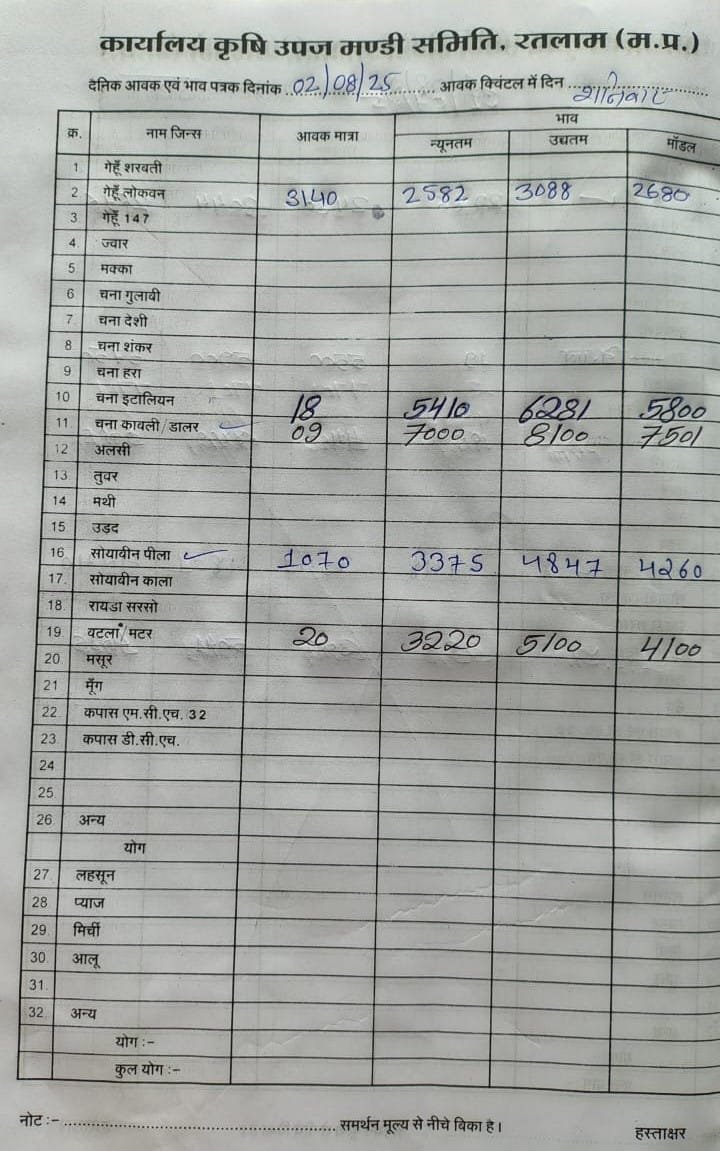 कार्यालय कृषि उपज मण्डी समिति, रतलाम (म.प्र.)
दैनिक आवक एवं भाव पत्रक दिनांक 02/08/25 आवक क्विंटल में दिन शनिवार
क्र. नाम जिन्स आवक मात्रा भाव
न्यूनतम उच्चतम मॉडल
1 गेहूँ शरबती
2 गेहूँ लोकवन 3140 2582 3088 2680
3. गेहूँ 147
4. ज्वार
5. मक्का
6 चना गुलाबी
7. चना देशी
8 चना शंकर
9 चना हरा
10 चना इटालियन 18 5410 6281 5800
11. चना काबली/डालर 09 7000 8100 7501
12 अलसी
13 तुवर
14 मथी
15 उड़द
16. सोयाबीन पीला 1070 3375 4847 4260
17. सोयाबीन काला
18. रायडा सरसो
19. वटला/मटर 20 3220 5100 4100
20. मसूर
21 मूँग
22 कपास एम.सी.एच. 32
23. कपास डी.सी.एच.
24
25.
26. अन्य
योग
27. लहसून
28 प्याज
29. मिर्ची
30. आलू
31.
32. अन्य
योग :-
कुल योग :-
नोट :- समर्थन मूल्य से नीचे बिका है। हस्ताक्षर